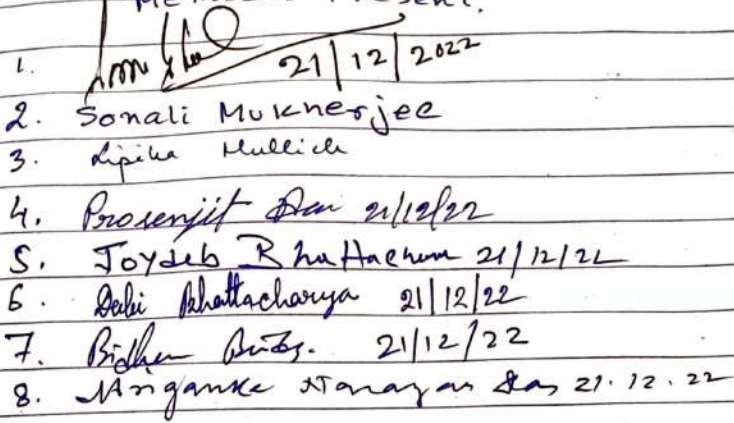 Members Present.
1. 21/12/2022
2. Sonali Muknerjee
3. Lipika Mullick
4. Prosenjit 21/12/22
5. Joydeb Bhattacharya 21/12/22
6. Debi Bhattacharya 21/12/22
7. 21/12/22
8. Mriganka Narayan Das 21.12.22